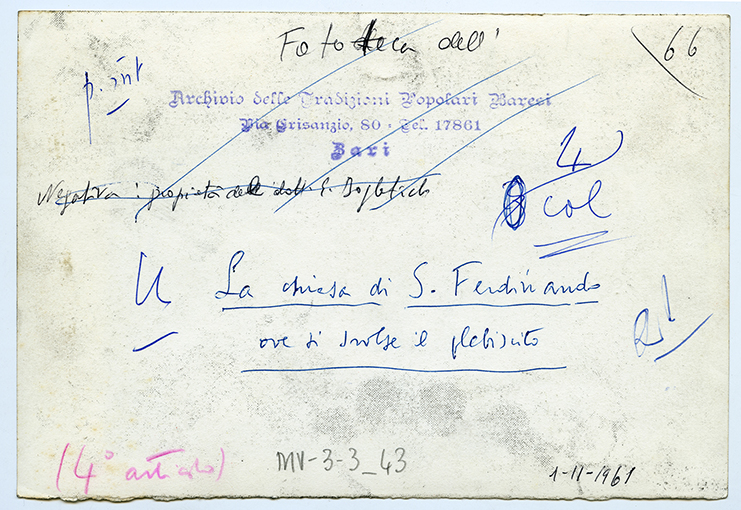 Fototeca dell'
66
p. int
Archivio delle Tradizioni Popolari Baresi
Via Crisanzio, 80 - Tel. 17861
Bari
Negativa: proprietà del dott.
4
col
La chiesa di S. Ferdinando
ove si svolse il plebiscito
(4° articolo)
MV-3-3_43
1-11-1961